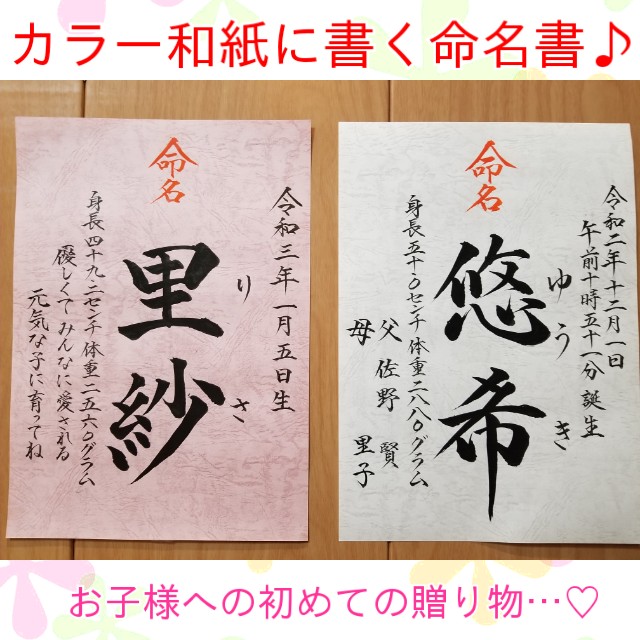 カラー和紙に書く命名書♪
命名
令和三年一月五日生
里紗
りさ
身長四十九.二センチ体重二五六〇グラム
優しくてみんなに愛される
元気な子に育ってね
命名
令和二年十二月一日
午前十時五十一分誕生
悠希
ゆうき
身長五十.〇センチ体重二八八〇グラム
父佐野賢
母里子
お子様への初めての贈り物…♡